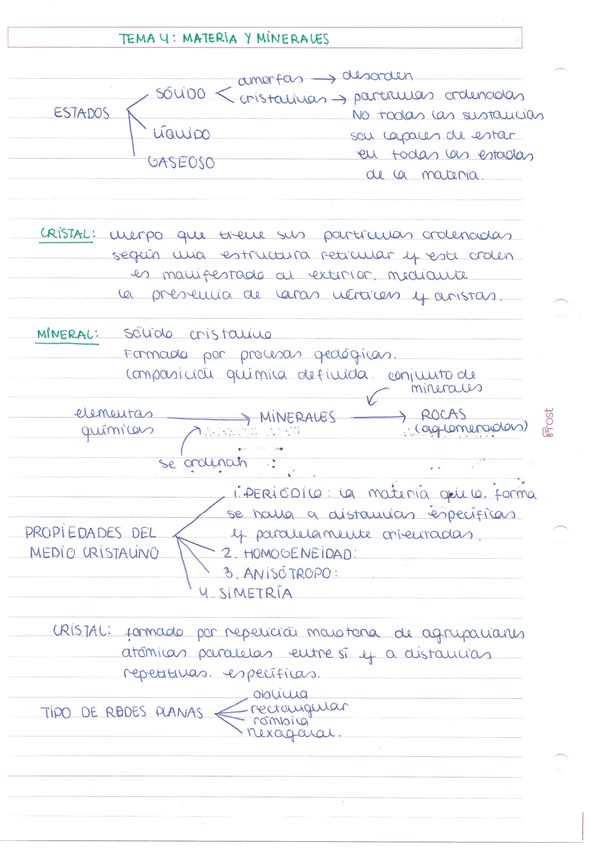 TEMA 4: MATERIA Y MINERALES
amorfas → desorden
SÓLIDO
cristalinas → partículas ordenadas
ESTADOS
No todas las sustancias
LÍQUIDO
son capaces de estar
en todas los estados
GASEOSO
de la materia.
CRISTAL: cuerpo que tiene sus partículas ordenadas
según una estructura reticular y este orden
es manifestado al exterior. mediante
la presencia de caras vértices y aristas.
MINERAL: Sólido cristalino
Formado por procesos geológicos.
Composición química definida. conjunto de
minerales
elementos → MINERALES → ROCAS
químicos
(aglomerados)
se ordenan
1. PERIÓDICO: la materia que lo forma
se halla a distancias específicas
PROPIEDADES DEL
y paralelamente orientadas.
MEDIO CRISTALINO
2. HOMOGENEIDAD:
3. ANISÓTROPO:
4. SIMETRÍA
CRISTAL: formado por repetición monótona de agrupaciones
atómicas paralelas entre sí y a distancias
repetitivas. específicas.
oblicua
TIPO DE REDES PLANAS
rectangular
rómbica
hexagonal.
Frost